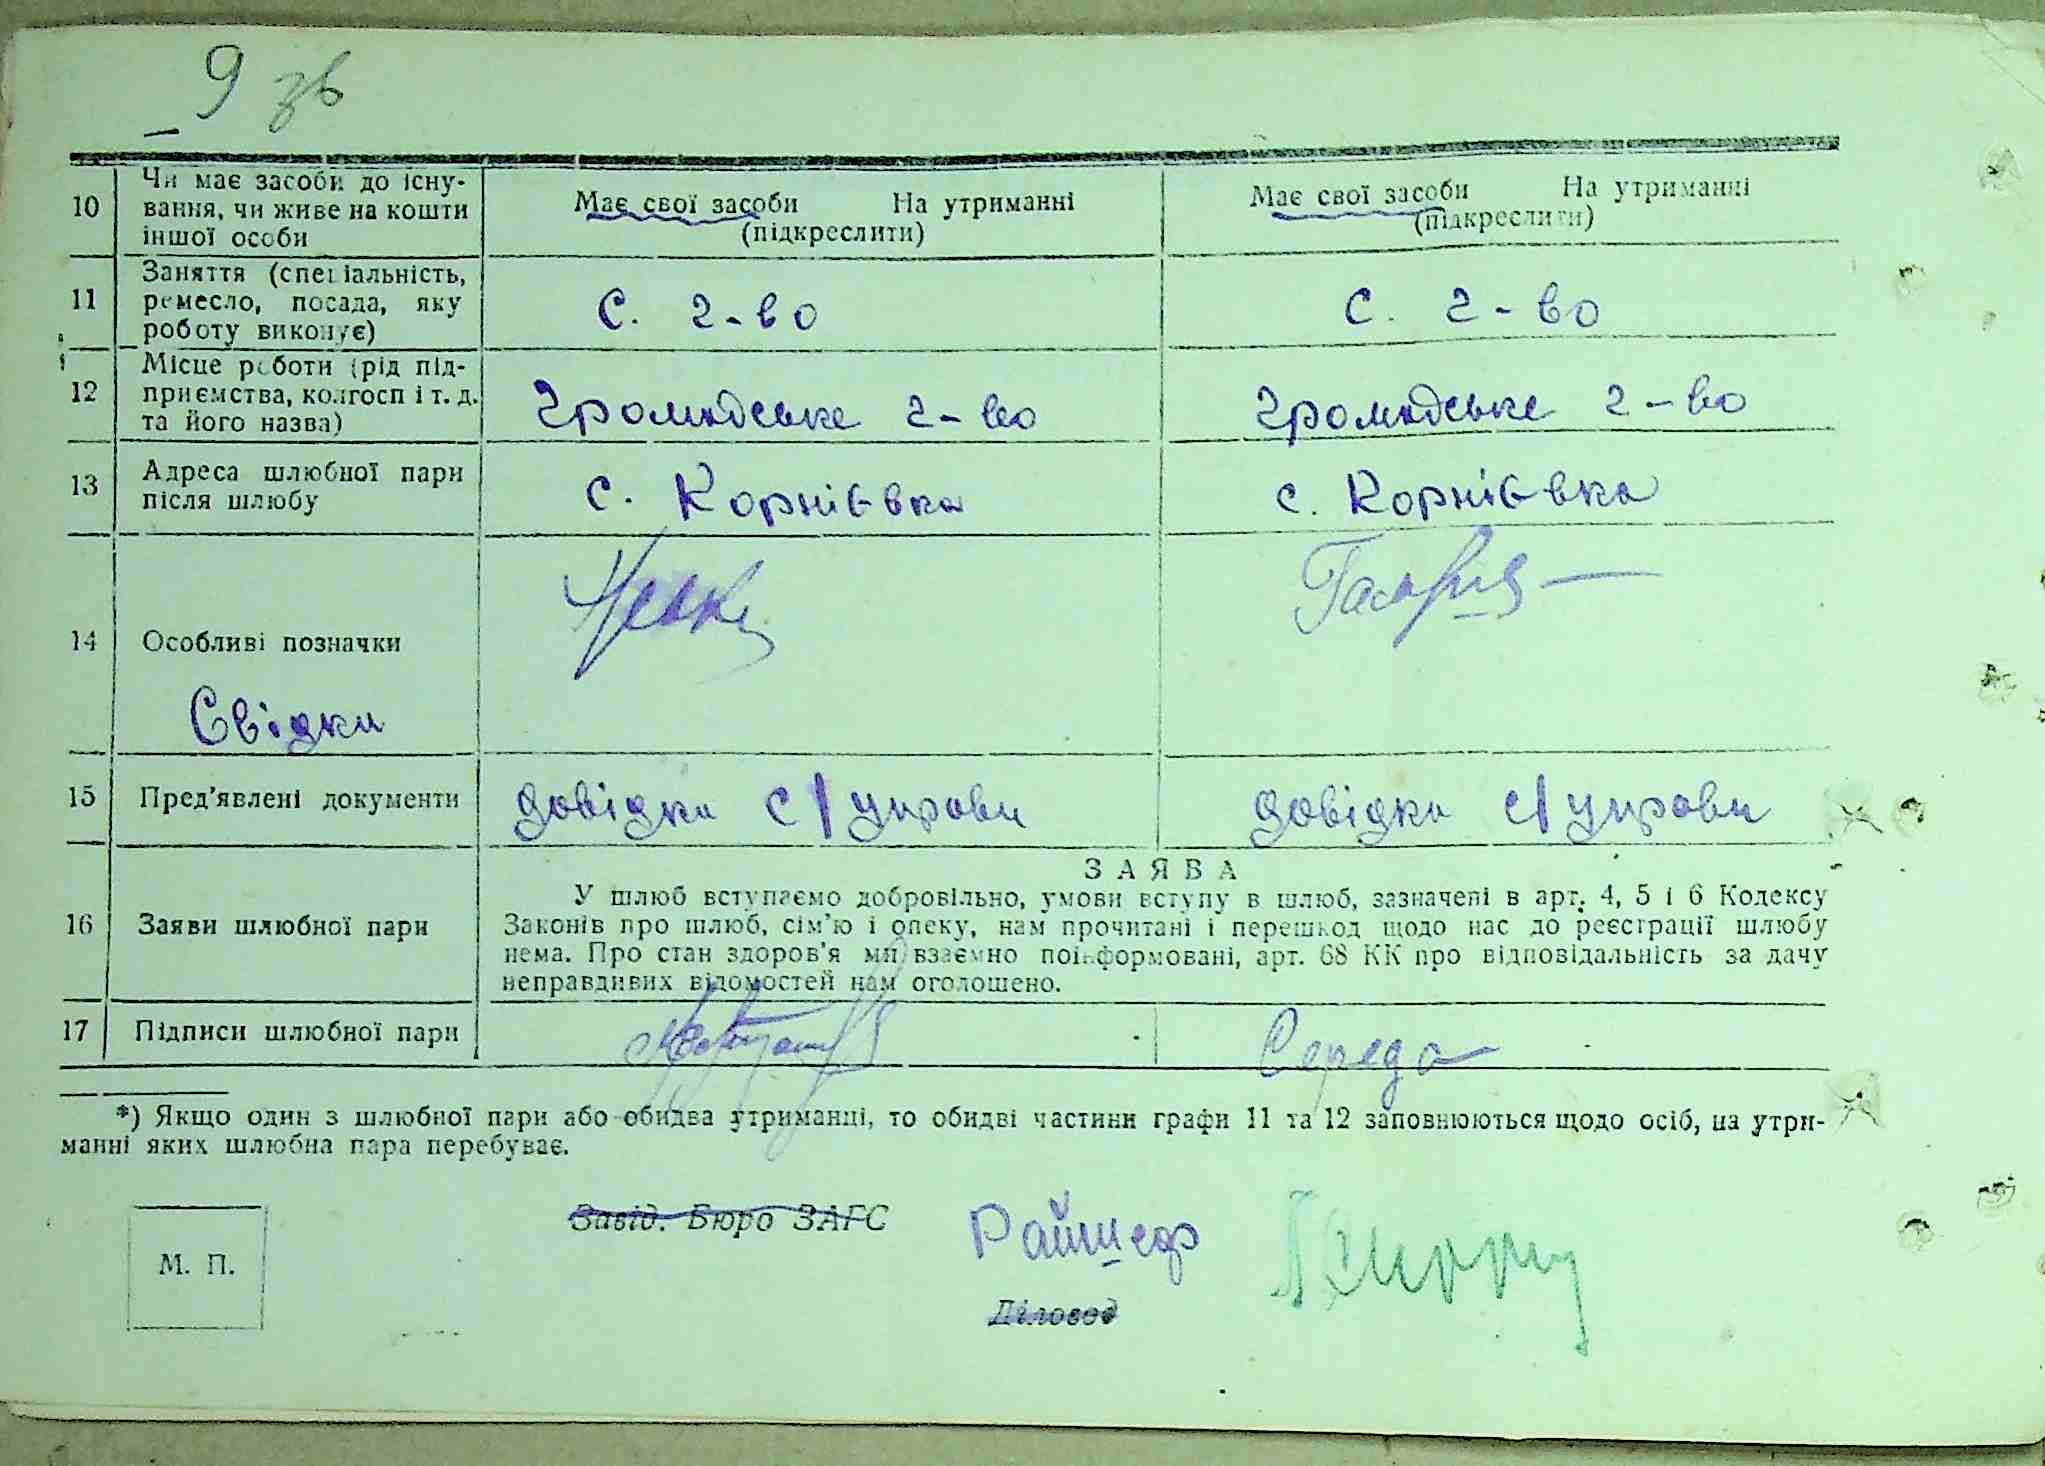 9 зв
10 Чи має засоби до існу-
вання, чи живе на кошти
іншої особи
Має свої засоби На утриманні
(підкреслити)
Має свої засоби На утриманні
(підкреслити)
11 Заняття (спеціальність,
ремесло, посада, яку
роботу виконує)
С. г-во
С. г-во
12 Місце роботи (рід під-
приємства, колгосп і т. д.
та його назва)
Громадське г-во
Громадське г-во
13 Адреса шлюбної пари
після шлюбу
с. Корнієвка
с. Корнієвка
14 Особливі позначки
Свідки
15 Пред'явлені документи
довідка с/управи
довідка с/управи
16 Заяви шлюбної пари
ЗАЯВА
У шлюб вступаємо добровільно, умови вступу в шлюб, зазначені в арт. 4, 5 і 6 Кодексу
Законів про шлюб, сім'ю і опеку, нам прочитані і перешкод щодо нас до реєстрації шлюбу
нема. Про стан здоров'я ми взаємно поінформовані, арт. 68 КК про відповідальність за дачу
неправдивих відомостей нам оголошено.
17 Підписи шлюбної пари
Середа
*) Якщо один з шлюбної пари або обидва утриманці, то обидві частини графи 11 та 12 заповнюються щодо осіб, на утри-
манні яких шлюбна пара перебуває.
Завід. Бюро ЗАГС
Райшеф
М. П.
Діловод